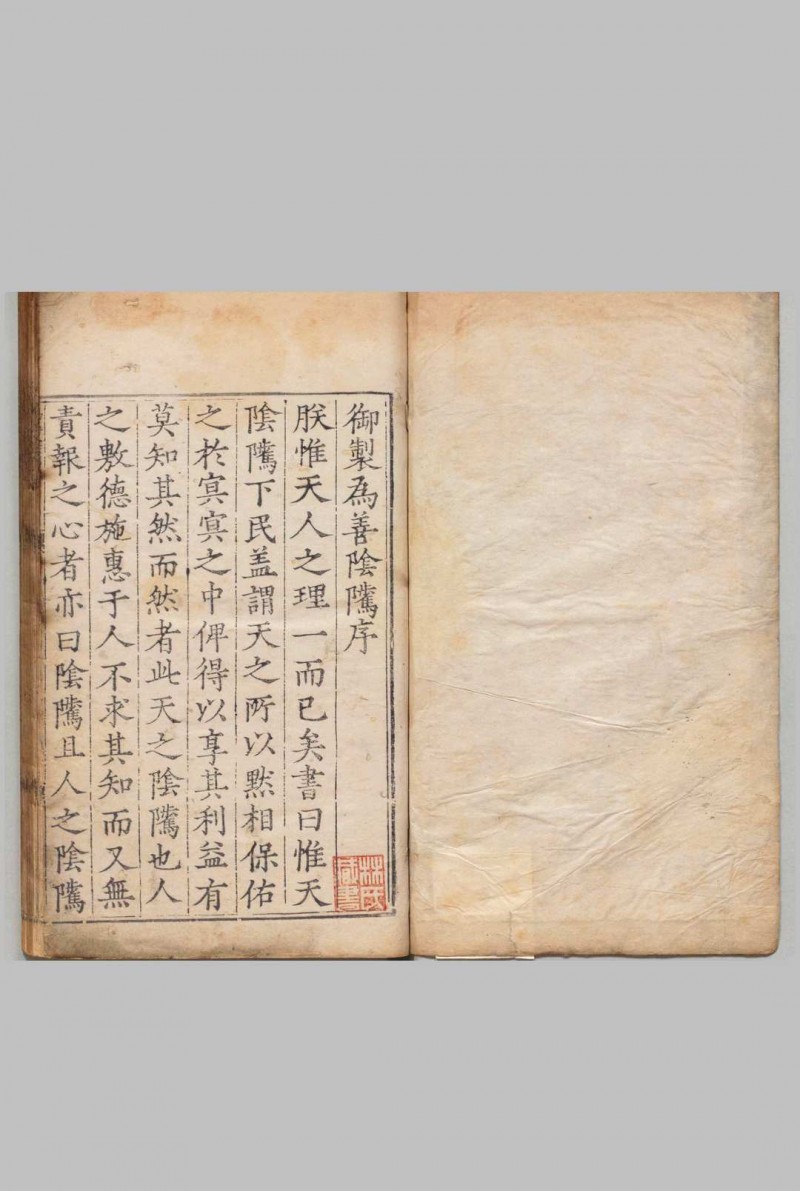 御製為善陰騭序
朕惟天人之理一而已矣書曰惟天
陰騭下民盖謂天之所以黙相保佑
之扵㝠㝠之中俾得以享其利益有
莫知其然而然者此天之陰騭也人
之敷德施惠于人不求其知而又無
責報之心者亦曰陰騭且人之陰騭
林氏
藏書